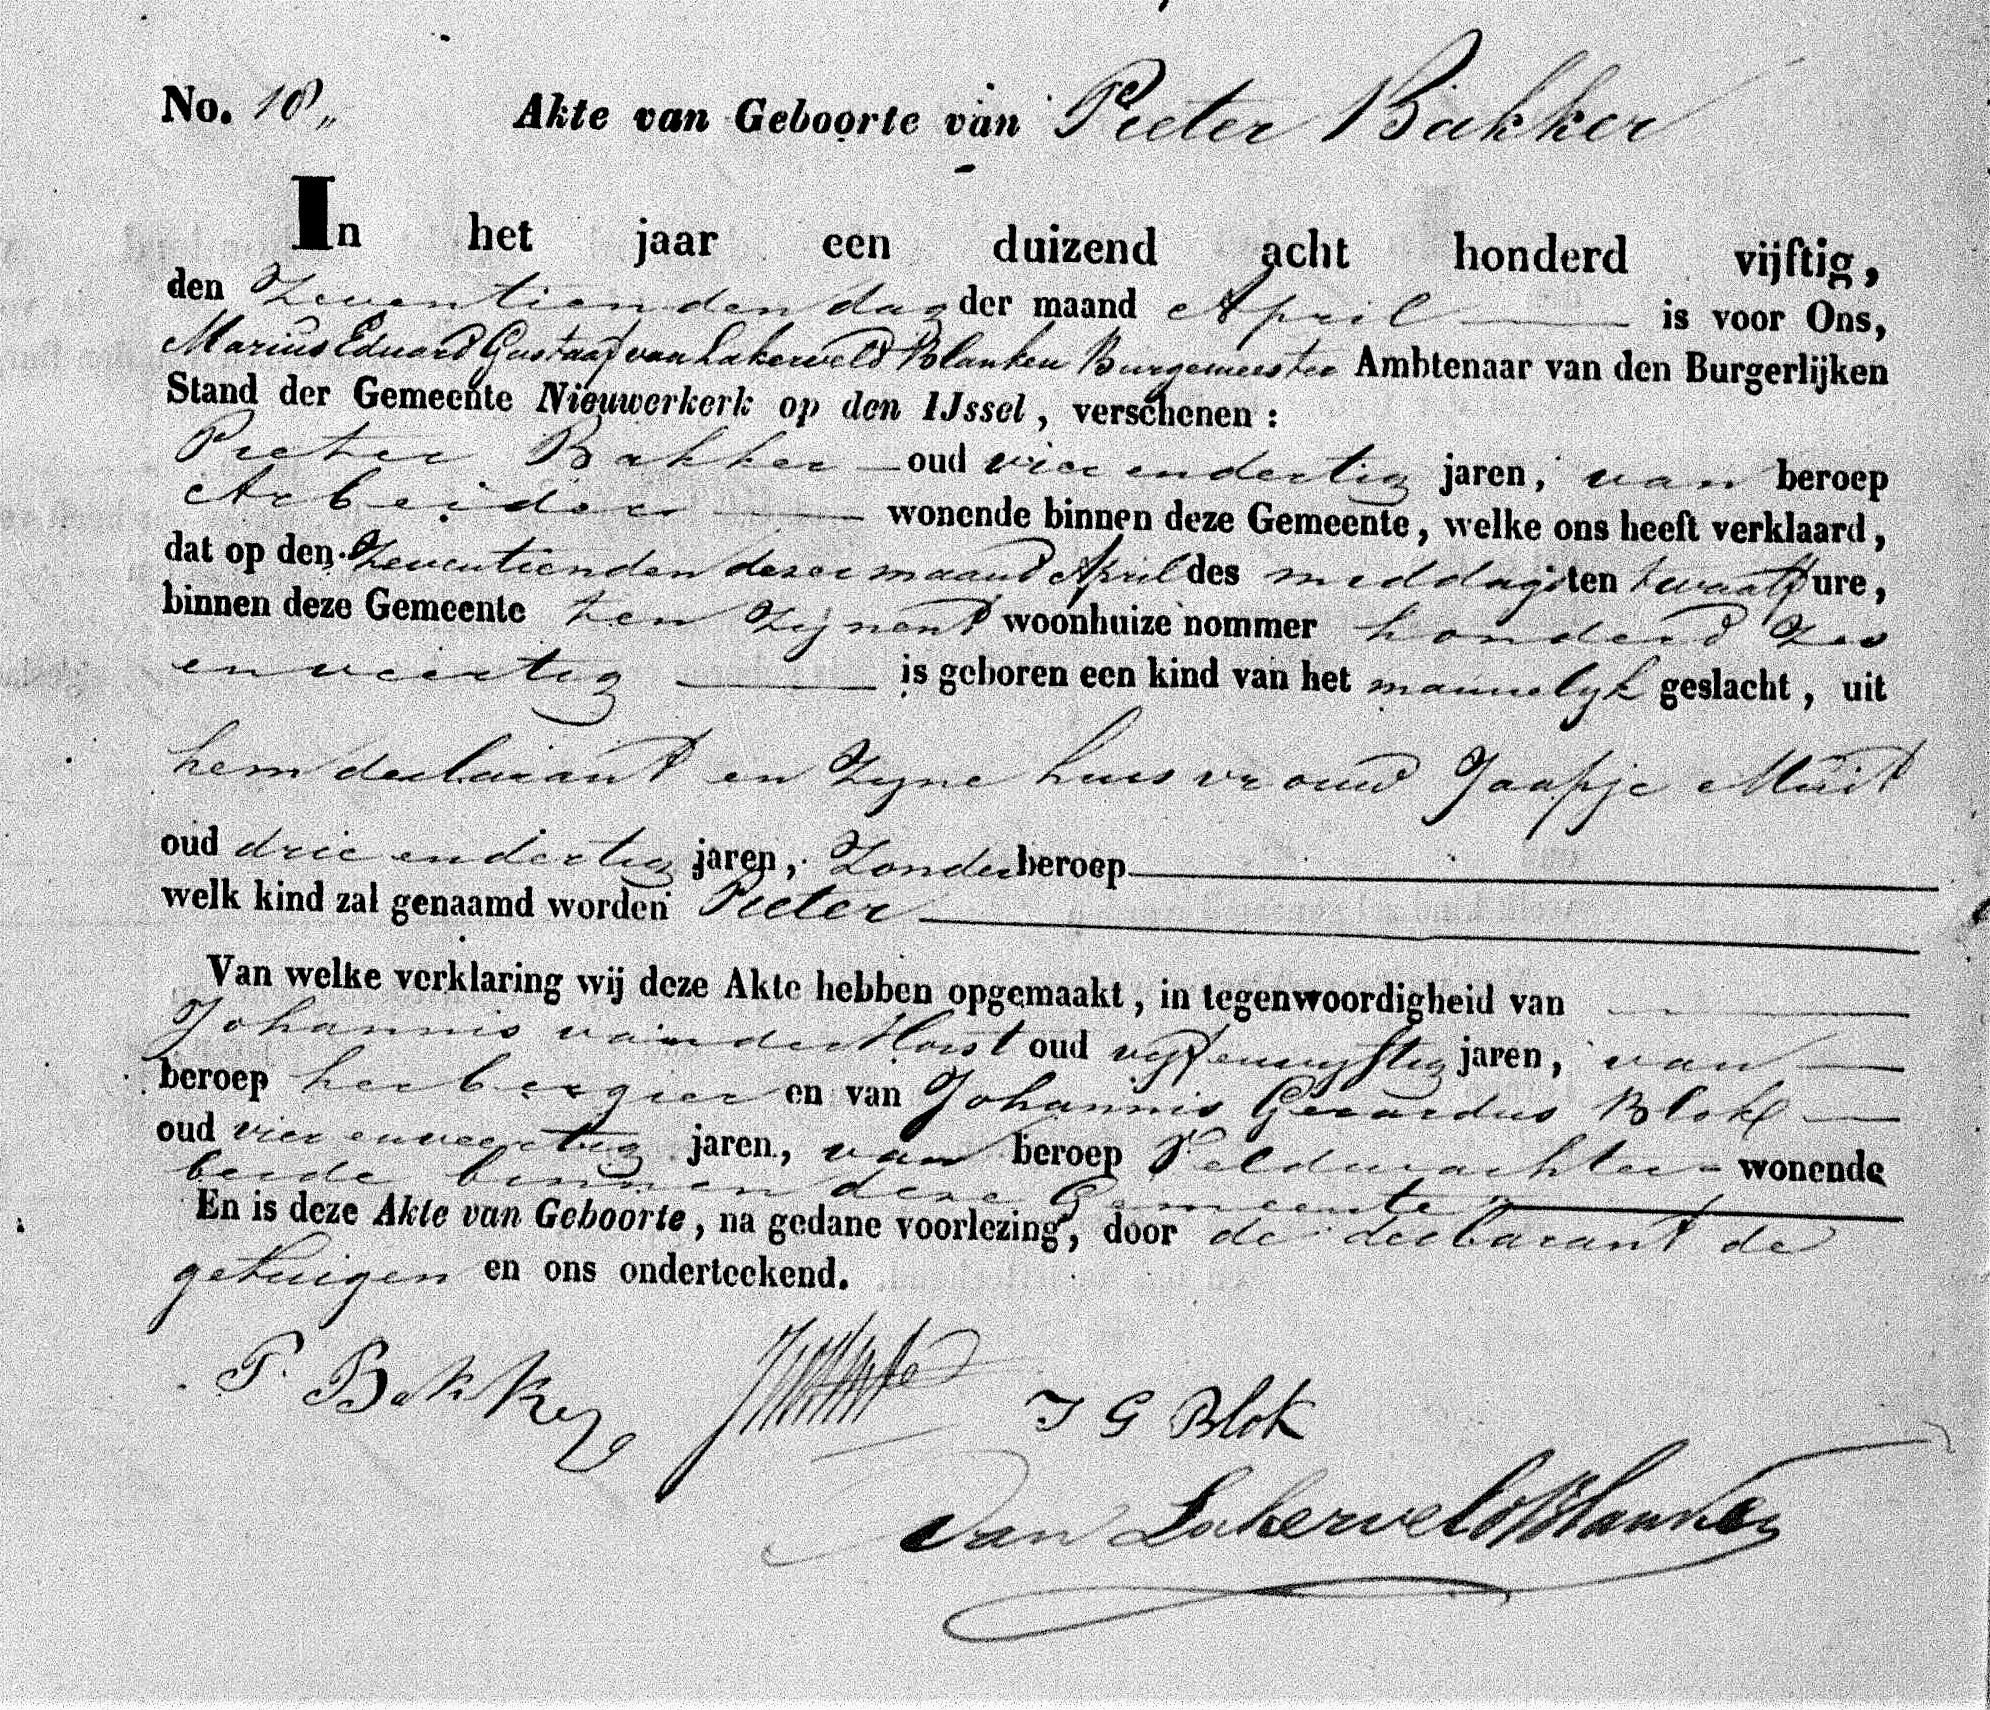 No. 18„ Akte van Geboorte van Pieter Bakker
In het jaar een duizend acht honderd vijftig,
den Zeventienden dag der maand April is voor Ons,
Marius Eduard Gustaaf van Lakerveld Blanken Burgemeester Ambtenaar van den Burgerlijken
Stand der Gemeente Nieuwerkerk op den IJssel, verschenen :
Pieter Bakker oud vier en dertig jaren, van beroep
Arbeider wonende binnen deze Gemeente, welke ons heeft verklaard,
dat op den Zeventienden dezer maand April des middags ten twaalf ure,
binnen deze Gemeente ten zijnent woonhuize nommer honderd zes
en veertig is geboren een kind van het mannelyk geslacht, uit
hem declarant en Zyne huisvrouw Jaapje Muit
oud drie en dertig jaren, Zonder beroep
welk kind zal genaamd worden Pieter
Van welke verklaring wij deze Akte hebben opgemaakt, in tegenwoordigheid van
Johannis van der Horst oud vyf en vyftig jaren, van
beroep herbergier en van Johannis Gerardus Blok
oud vier en veertig jaren, van beroep Veldwachter wonende
beide binnen deze Gemeente
En is deze Akte van Geboorte, na gedane voorlezing, door de declarant de
getuigen en ons onderteekend.
P. Bakker
J G Blok
Van Lakerveld Blanken